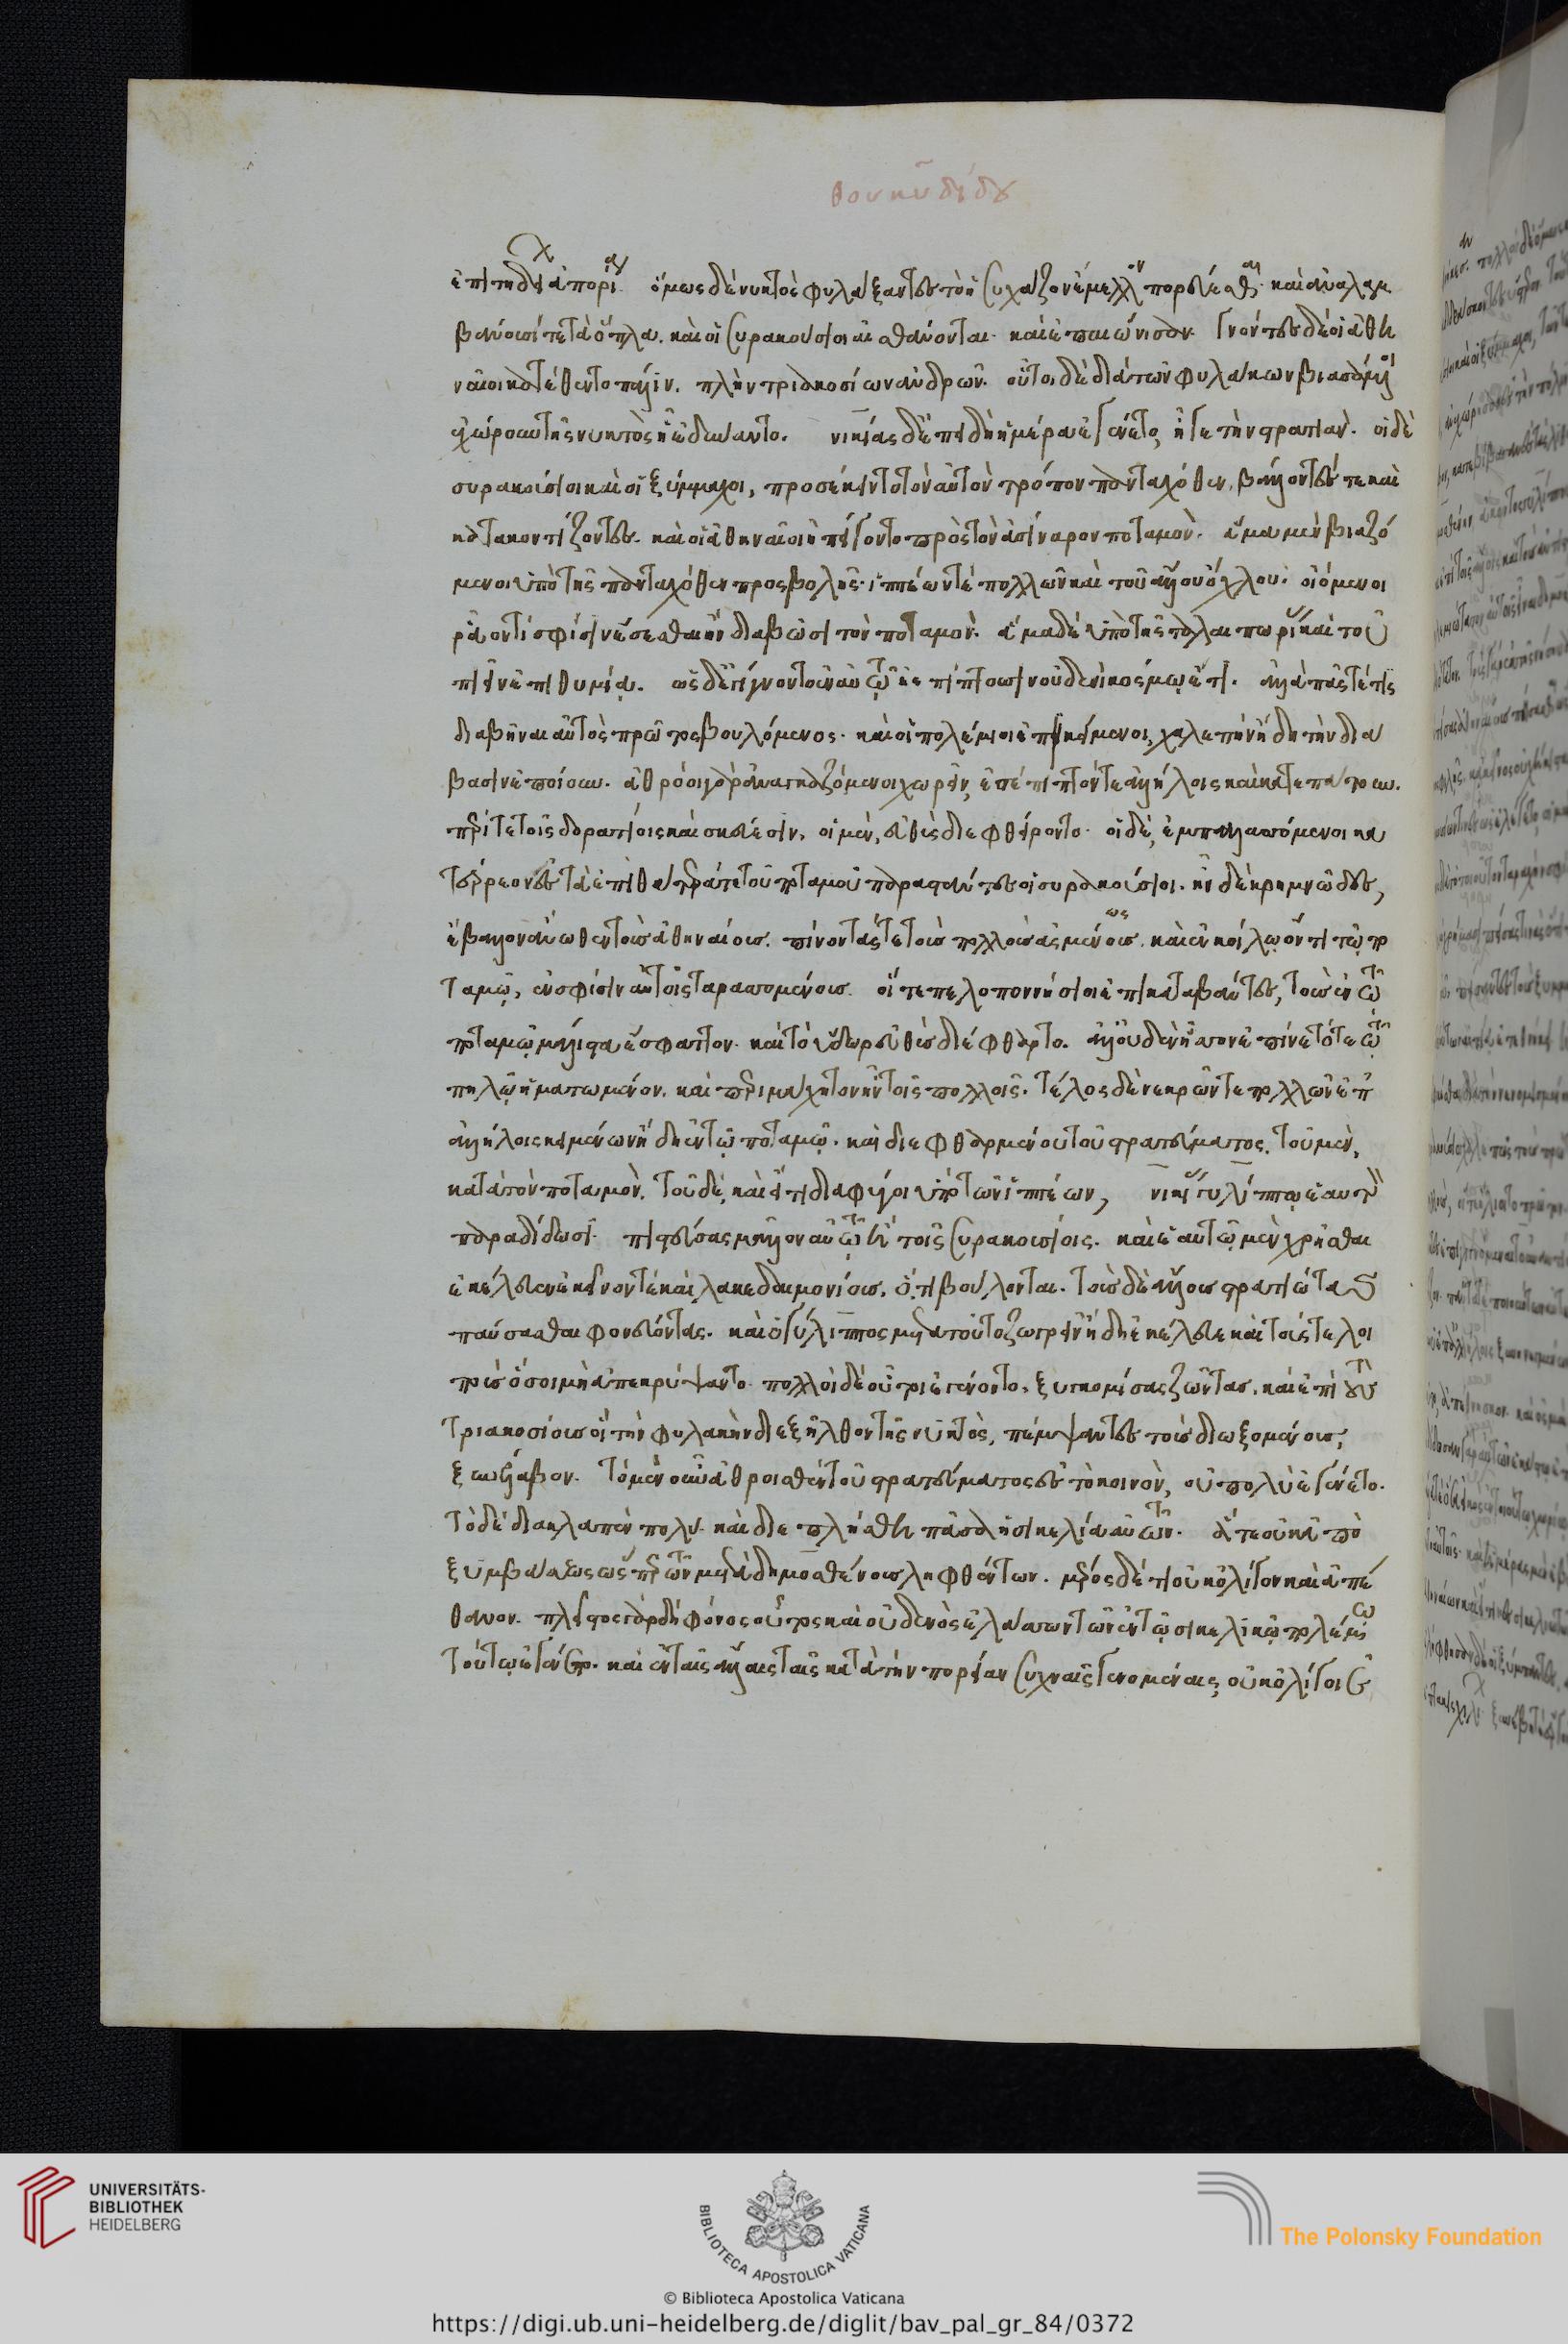 θουκυδίδου
ἐπιτηδείων ἀπορίαι. ὅμως δὲ νυκτὸς φυλάξαντες τὸ ἡσυχάζον ἔμελλον πορεύεσθαι. καὶ ἀναλαμ
βάνουσί τε τὰ ὅπλα. καὶ οἱ συρακούσιοι αἰσθάνονται. καὶ ἐπαιώνισαν. γνόντες δὲ οἱ ἀθη
ναῖοι κατέθεντο πάλιν. πλὴν τριακοσίων ἀνδρῶν. οὗτοι δὲ διὰ τῶν φυλάκων βιασάμενοι
ἐχώρουν τῆς νυκτὸς ἧ ἐδύναντο. νικίας δ' ἐπειδὴ ἡμέρα ἐγένετο, ἦγε τὴν στρατιάν. οἱ δὲ
συρακούσιοι καὶ οἱ ξύμμαχοι, προσέκειντο τὸν αὐτὸν τρόπον πανταχόθεν, βάλλοντές τε καὶ
κατακοντίζοντες. καὶ οἱ ἀθηναῖοι ἠπείγοντο πρὸς τὸν ἀσίναρον ποταμὸν. ἅμα μὲν βιαζό
μενοι ὑπὸ τῆς πανταχόθεν προσβολῆς. ἱππέων τε πολλῶν καὶ τοῦ ἄλλου ὄχλου. οἰόμενοι
ρᾶόν τι σφίσιν ἔσεσθαι ἢν διαβῶσι τὸν ποταμὸν. ἅμα δὲ ὑπὸ τῆς ταλαιπωρίας καὶ τοῦ
πιεῖν ἐπιθυμίᾳ. ὡς δὲ γίγνονται ἐπ' αὐτῷ ἐσπίπτουσιν οὐδενὶ κόσμῳ ἔτι. ἀλλὰ πᾶς τέ τις
διαβῆναι αὐτὸς πρῶτος βουλόμενος. καὶ οἱ πολέμιοι ἐπικείμενοι, χαλεπὴν ἤδη τὴν διά
βασιν ἐποίουν. ἀθρόοι γὰρ ἀναγκαζόμενοι χωρεῖν, ἐπέπιπτόν τε ἀλλήλοις καὶ κατεπάτουν.
περί τε τοῖς δορατίοις καὶ σκεύεσιν, οἱ μὲν, εὐθὺς διεφθείροντο. οἱ δὲ, ἐμπαλασσόμενοι κα
τέρρεον. ἐς τὰ ἐπὶ θάτερά τε τοῦ ποταμοῦ παραστάντες οἱ συρακούσιοι. ἦν δὲ κρημνῶδες,
ἔβαλλον ἄνωθεν τοὺς ἀθηναίους. πίνοντάς τε τοὺς πολλοὺς ἀσμένους. καὶ ἐν κοίλῳ ὄντι τῷ πο
ταμῷ, ἐν σφίσιν αὐτοῖς ταρασσομένους. οἵ τε πελοποννήσιοι ἐπικαταβάντες, τοὺς ἐν τῷ
ποταμῷ μάλιστα ἔσφαττον. καὶ τὸ ὕδωρ εὐθὺς διέφθαρτο. ἀλλ' οὐδὲν ἧσσον ἐπίνετό τε τῷ
πηλῷ ἡματωμένον. καὶ περιμάχητον ἦν τοῖς πολλοῖς. τέλος δὲ νεκρῶν τε πολλῶν ἐπ'
ἀλλήλοις κειμένων ἤδη ἐν τῷ ποταμῷ. καὶ διεφθαρμένου τοῦ στρατεύματος. τοῦ μὲν,
κατὰ τὸν ποταμὸν. τοῦ δὲ, καὶ εἴ τι διαφύγοι ὑπὸ τῶν ἱππέων, νικίας γυλίππῳ ἑαυτὸν
παραδίδωσι. πιστεύσας μᾶλλον αὐτῷ ἢ τοῖς συρακουσίοις. καὶ ἑαυτῷ μὲν χρῆσθαι
ἐκέλευεν ἐκεῖνόν τε καὶ λακεδαιμονίους. ὅ,τι βούλονται. τοὺς δὲ ἄλλους στρατιώτας
παύσασθαι φονεύοντας. καὶ ὁ γύλιππος μετὰ τοῦτο ζωγρεῖν ἤδη ἐκέλευε καὶ τούς τε λοι
ποὺς ὅσοι μὴ ἀπεκρύψαντο. πολλοὶ δὲ οὗτοι ἐγένοντο. ξυνεκόμισας ζῶντας. καὶ ἐπὶ τοὺς
τριακοσίους οἳ τὴν φυλακὴν διεξῆλθον τῆς νυκτὸς, πέμψαντες τοὺς διωξομένους,
ξυνέλαβον. τὸ μὲν οὖν ἀθροισθὲν τοῦ στρατεύματος ἐς τὸ κοινὸν, οὐ πολὺ ἐγένετο.
τὸ δὲ διακλαπὲν πολὺ. καὶ διεπλήσθη πᾶσα ἡ σικελία αὐτῶν. ἅτε οὐκ ἀπὸ
ξυμβάσεως ὥσπερ τῶν μετὰ δημοσθένους ληφθέντων. μέρος δέ τι οὐκ ὀλίγον καὶ ἀπέ
θανον. πλεῖστος γὰρ δὴ φόνος οὗτος καὶ οὐδενὸς ἐλάσσων τῶν ἐν τῷ σικελικῷ πολέμῳ
τούτῳ ἐγένετο. καὶ ἐν ταῖς ἄλλαις ταῖς κατὰ τὴν πορείαν συχναῖς γενομέναις, οὐκ ὀλίγοι ἐ
UNIVERSITÄTS-
BIBLIOTHEK
HEIDELBERG
BIBLIOTECA APOSTOLICA VATICANA
The Polonsky Foundation
© Biblioteca Apostolica Vaticana
https://digi.ub.uni-heidelberg.de/diglit/bav_pal_gr_84/0372